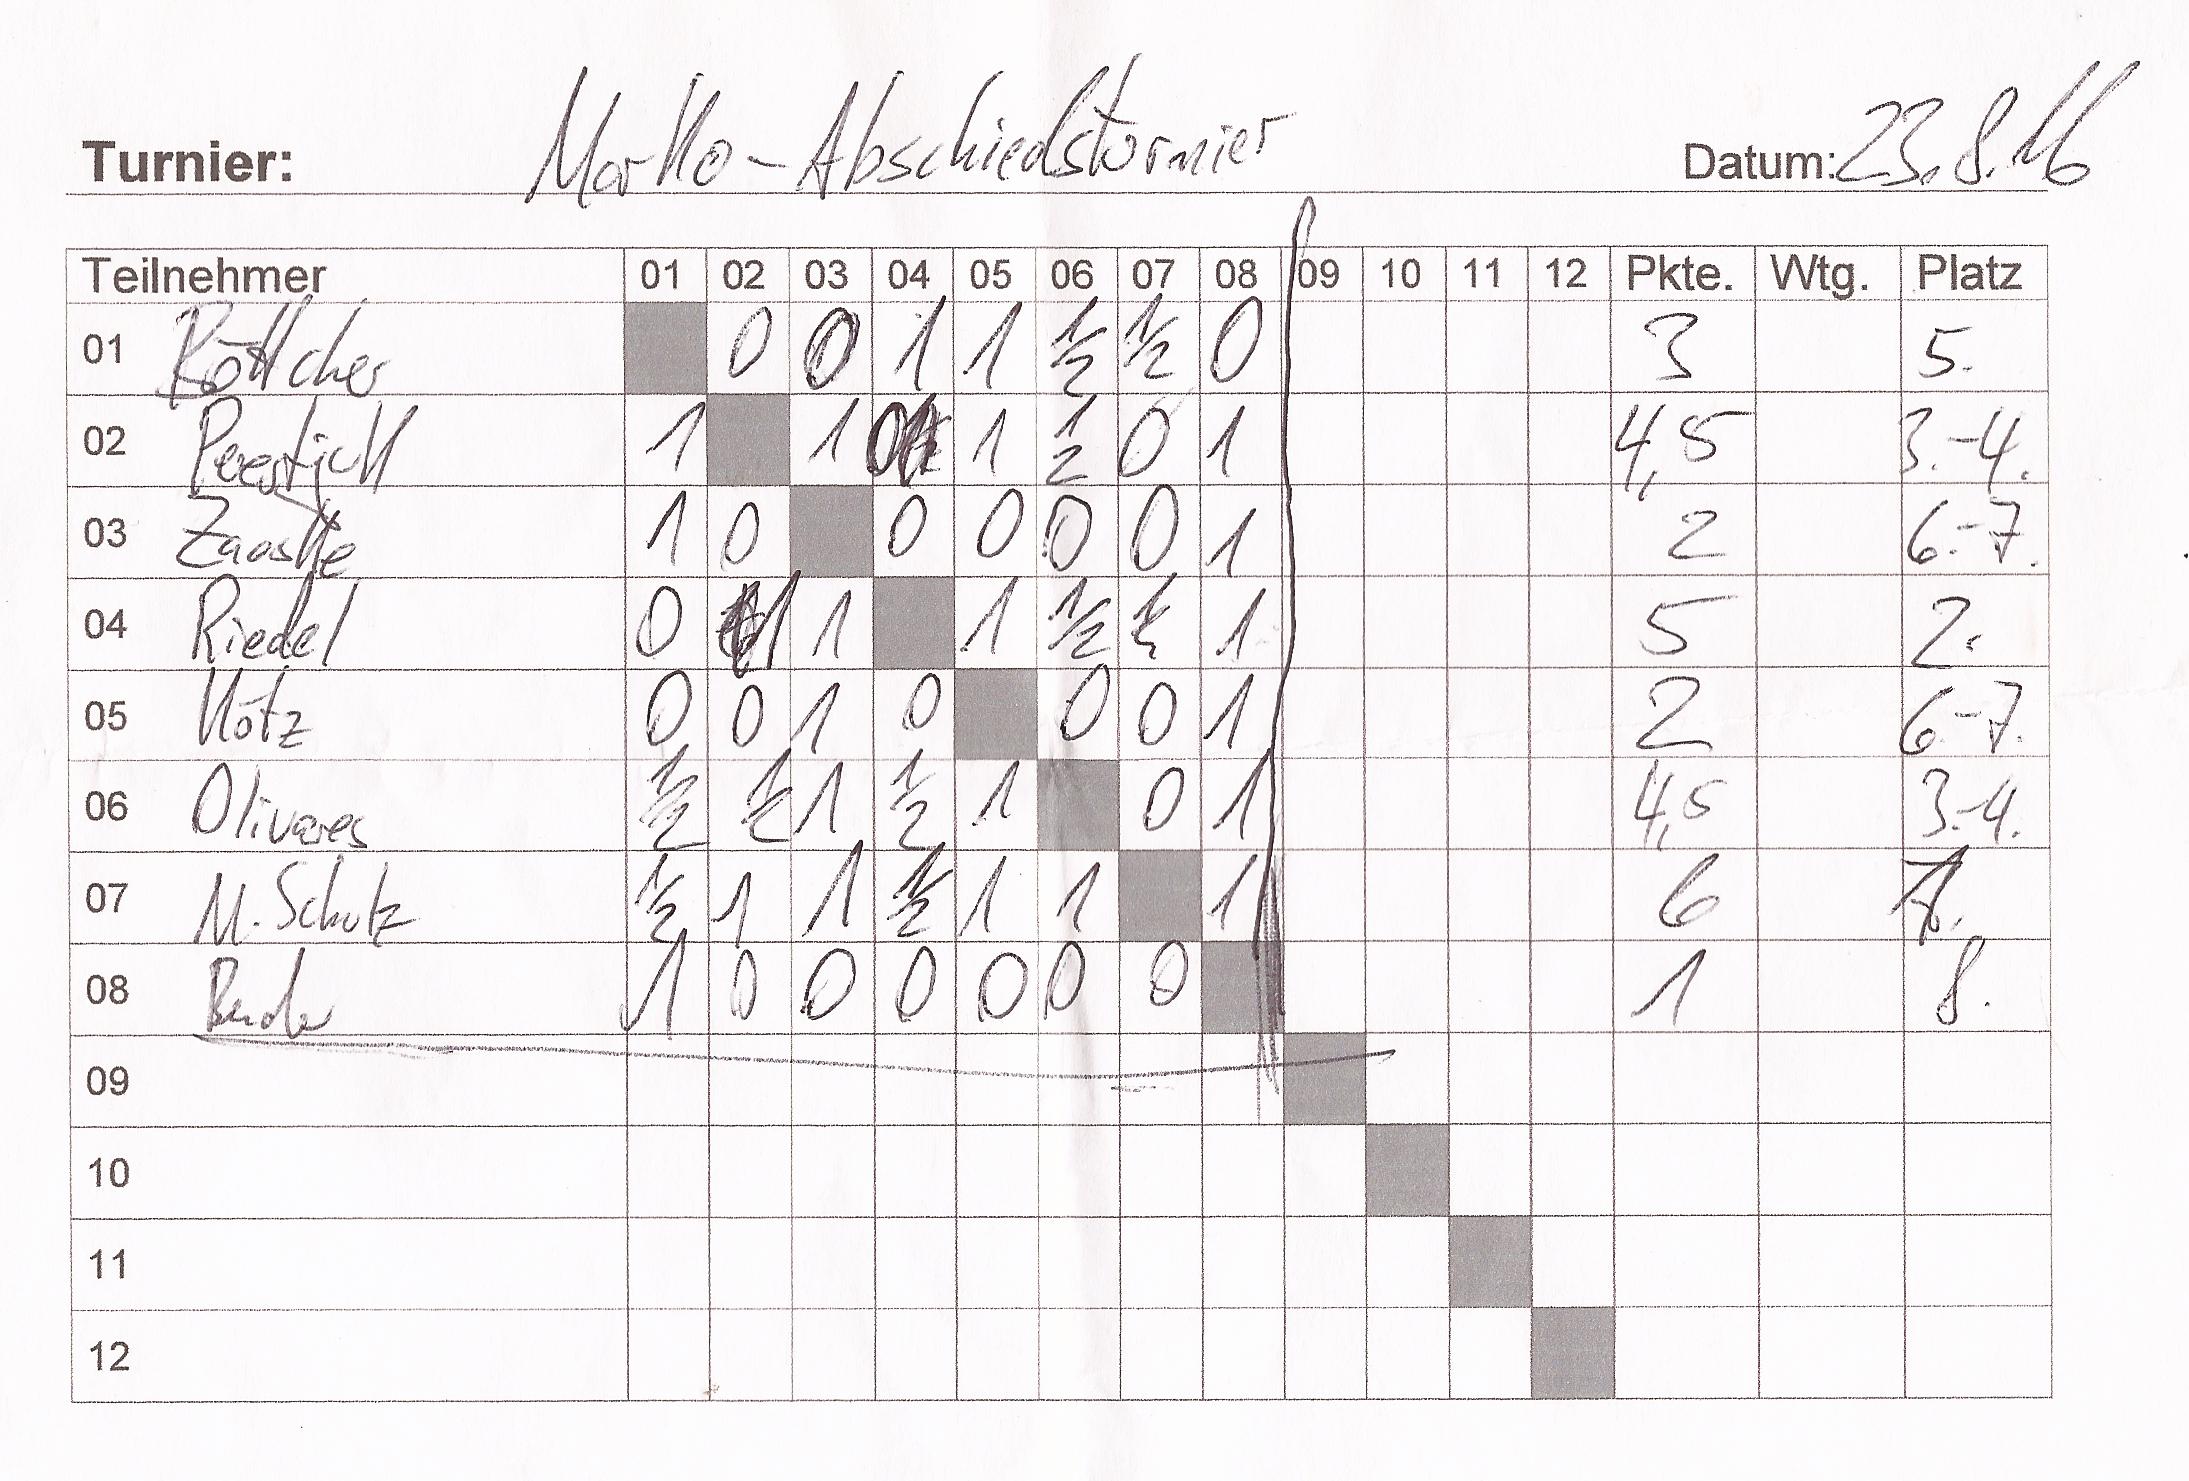 Turnier: Marko-Abschiedsturnier Datum: 23.8.16
Teilnehmer 01 02 03 04 05 06 07 08 09 10 11 12 Pkte. Wtg. Platz
01 Röttcher 0 0 1 1 ½ ½ 0 3 5.
02 1 1 0 1 ½ 0 1 4,5 3.-4.
03 1 0 0 0 0 0 1 2 6.-7.
04 Riedel 0 1 1 1 ½ ½ 1 5 2.
05 Kötz 0 0 1 0 0 0 1 2 6.-7.
06 Olivares ½ ½ 1 ½ 1 0 1 4,5 3.-4.
07 M. Schulz ½ 1 1 ½ 1 1 1 6 1.
08 1 0 0 0 0 0 0 1 8.
09
10
11
12